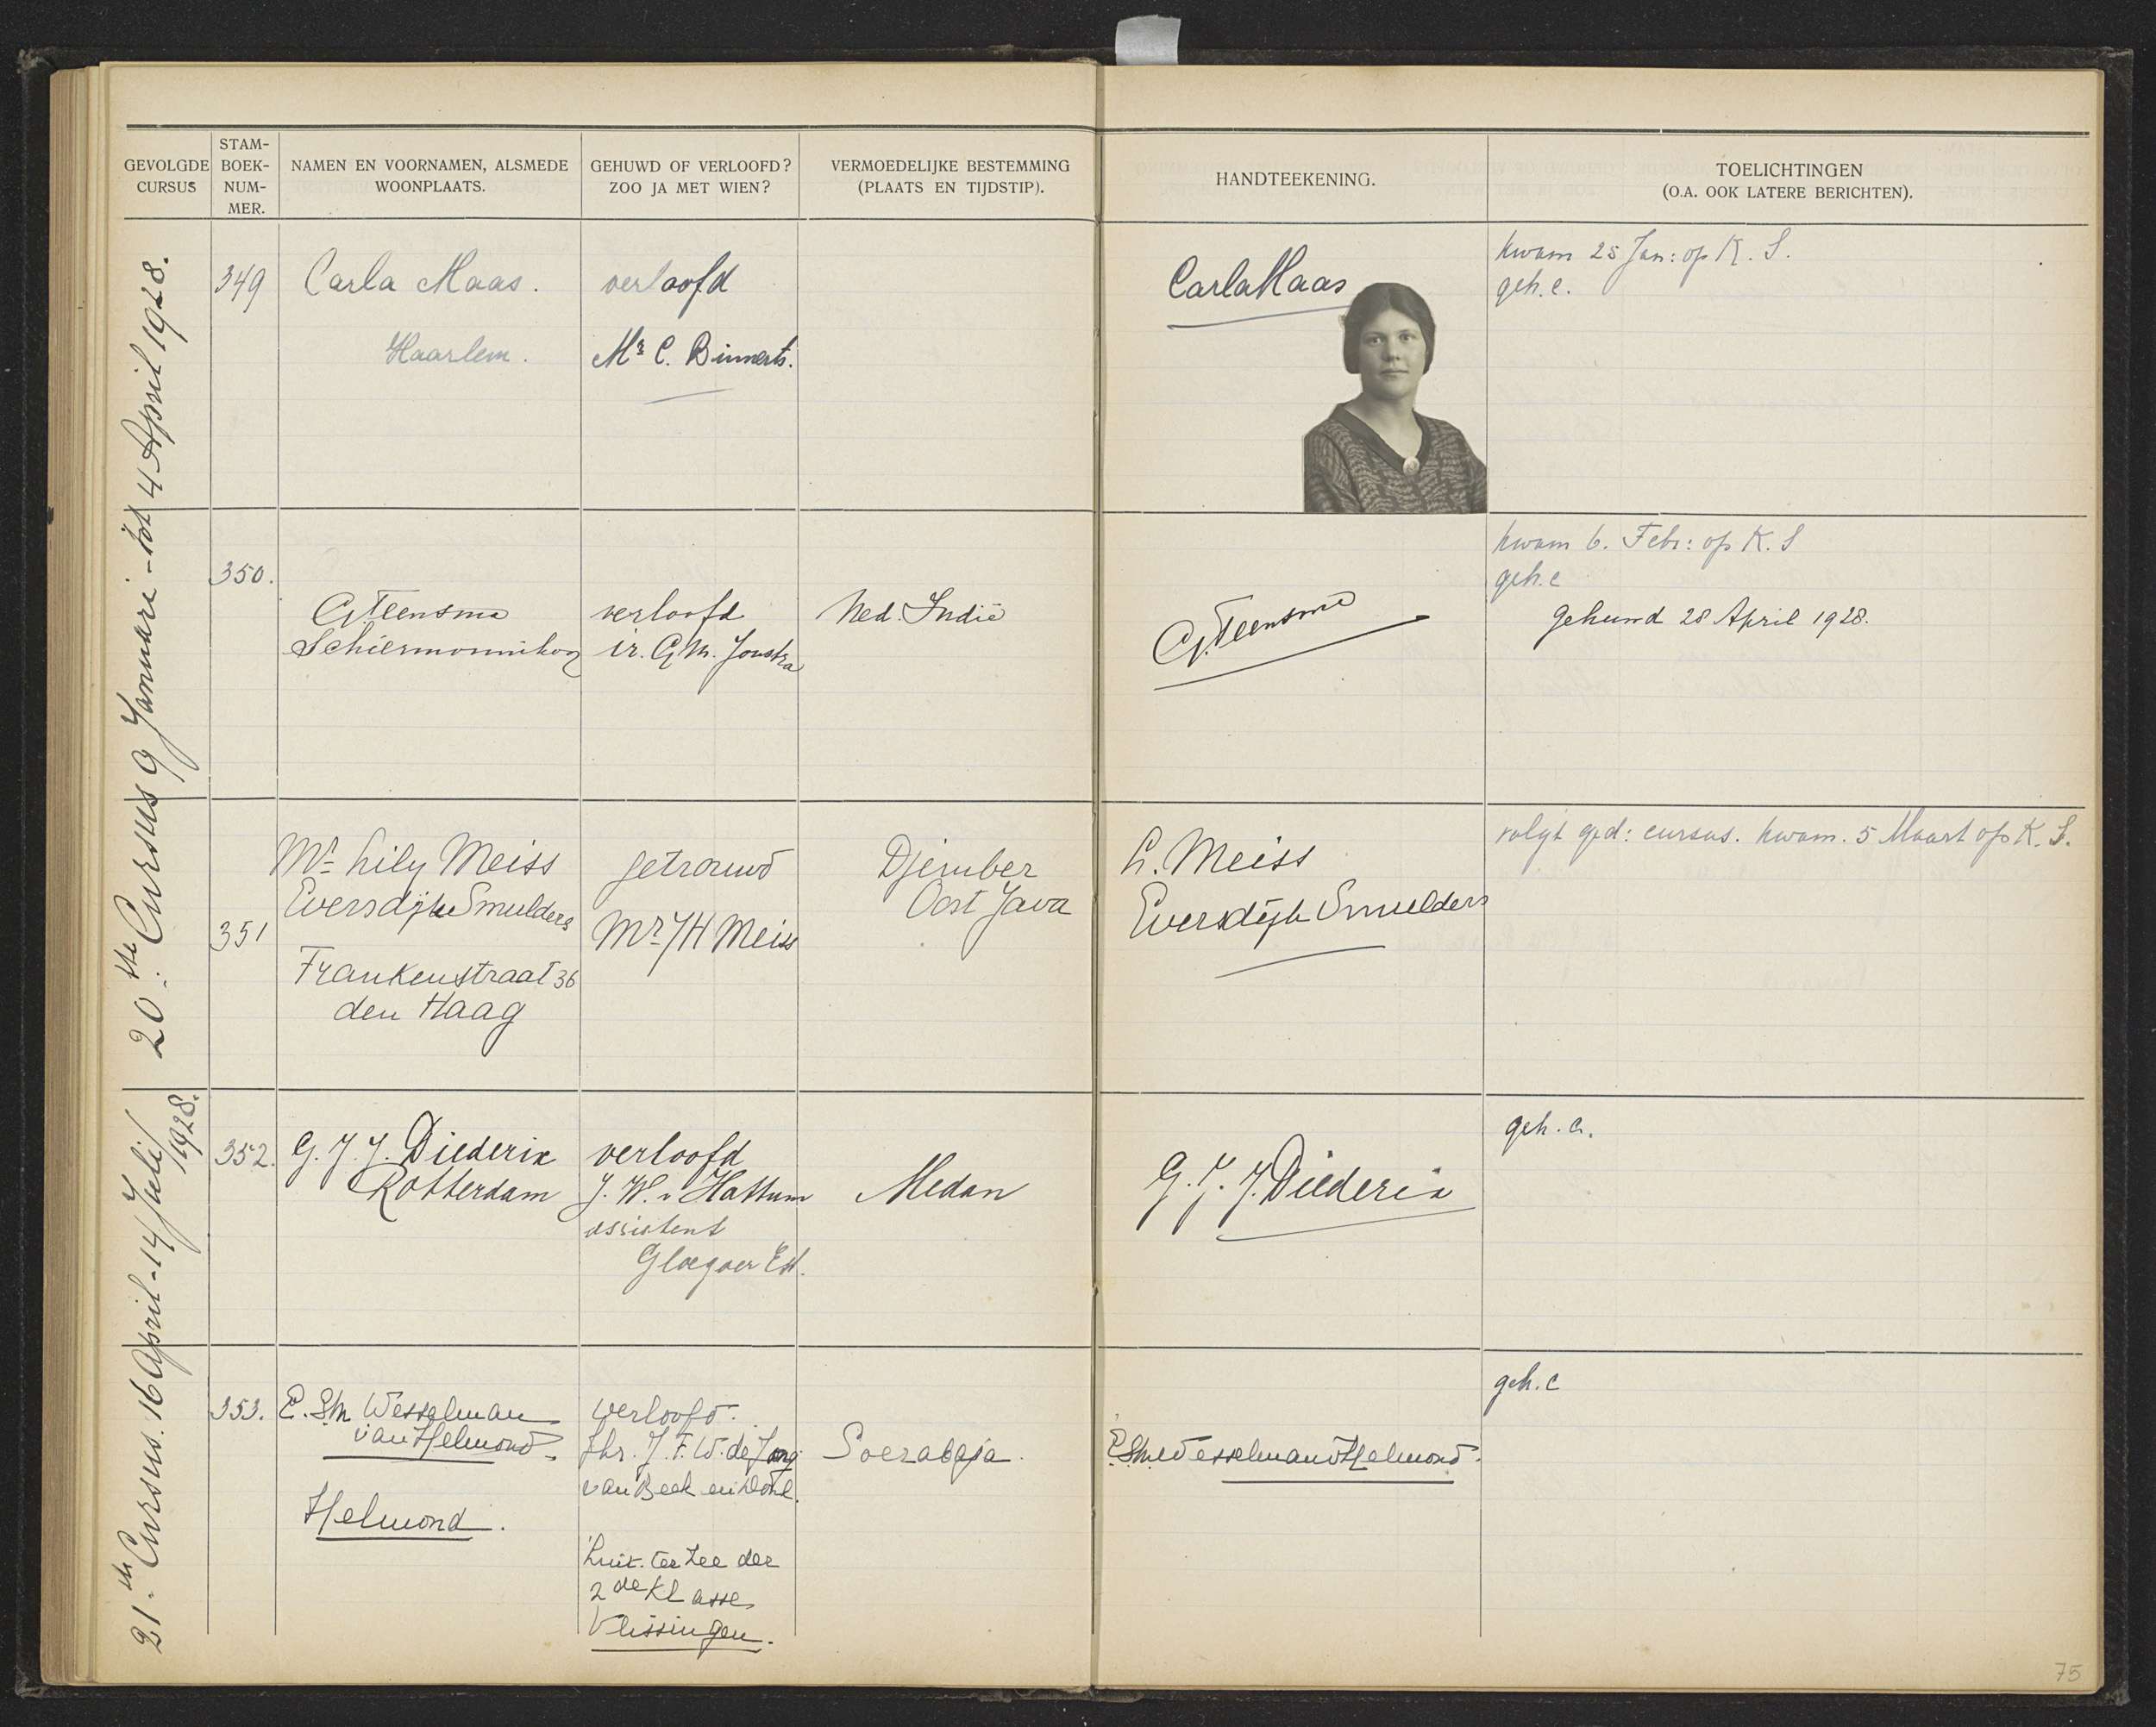 GEVOLGDE CURSUS
STAM-BOEK-NUM-MER.
NAMEN EN VOORNAMEN, ALSMEDE WOONPLAATS.
GEHUWD OF VERLOOFD? ZOO JA MET WIEN?
VERMOEDELIJKE BESTEMMING (PLAATS EN TIJDSTIP).
HANDTEEKENING.
TOELICHTINGEN (O.A. OOK LATERE BERICHTEN).
20ste Cursus 9 Januari - tot 4 April 1928.
349
Carla Maas.
Haarlem.
verloofd
Mr C. Binnerts.
Carla Maas
kwam 25 Jan: op K. S.
geh. c.
350.
G. Teensma
Schiermonnikoog
verloofd
ir. G. M. Joustra
Ned. Indië
G. Teensma
kwam 6. Febr: op K. S
geh. c
gehuwd 28 April 1928.
351
Mr Lily Meiss
Eversdijk Smulders
Frankenstraat 36
den Haag
getrouwd
Mr JH Meiss
Djember
Oost Java
L. Meiss
Eversdijk Smulders
volgt ged: cursus. kwam. 5 Maart op K. S.
21ste Cursus. 16 April - 14 Juli 1928.
352.
G. J. J. Diederix
Rotterdam
verloofd
J. W. v Hattum
assistent
Gloegoer Est.
Medan
G. J. J. Diederix
geh. c.
353.
E. S.M. Wesselman
van Helmond
Helmond.
verloofd.
Jhr. J. F. W. de Jong
van Beek en Donk.
Luit. ter Zee der
2de Klasse
Vlissingen.
Soerabaja.
E.S.M. Wesselman v Helmond.
geh. c
75